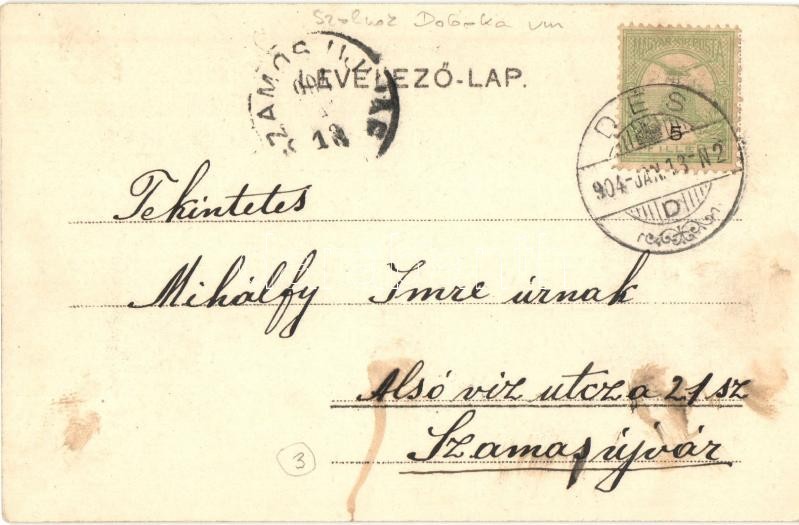 Szolnok Doboka vm
LEVELEZŐ-LAP.
SZAMOSUJVÁR
904
13
MAGYAR KIR. POSTA
5
FILLER
DÉS
904 JAN. 13-N2
D
Tekintetes
Mihálffy Imre úrnak
Alsó viz utcza 21 sz
Szamosújvár
3